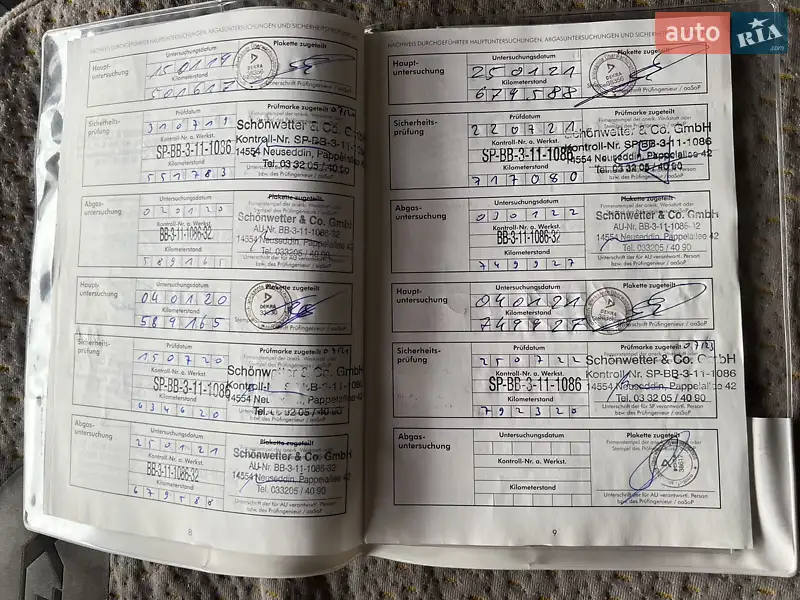 NACHWEIS DURCHGEFÜHRTER HAUPTUNTERSUCHUNGEN, ABGASUNTERSUCHUNGEN UND SICHERHEITSPRÜFUNGEN
Haupt-
untersuchung
Untersuchungsdatum
150119
Kilometerstand
501617
Plakette zugeteilt
DEKRA
Unterschrift Prüfingenieur / aaSoP
Sicherheits-
prüfung
Prüfdatum
310719
Kontroll-Nr. a. Werkst.
SP-BB-3-11-1086
Kilometerstand
551783
Prüfmarke zugeteilt
Schönwetter & Co. GmbH
Kontroll-Nr. SP-BB-3-11-1086
14554 Neuseddin, Pappelallee 42
Tel. 03 32 05 / 40 90
bzw. des Prüfingenieur / aaSoP
Abgas-
untersuchung
Untersuchungsdatum
020120
Kontroll-Nr. a. Werkst.
BB-3-11-1086-32
Kilometerstand
589165
Plakette zugeteilt
Schönwetter & Co. GmbH
AU-Nr. BB-3-11-1086-32
14554 Neuseddin, Pappelallee 42
Tel. 033205 / 40 90
bzw. des Prüfingenieur / aaSoP
Haupt-
untersuchung
Untersuchungsdatum
040120
Kilometerstand
589165
Plakette zugeteilt
DEKRA
Sicherheits-
prüfung
Prüfdatum
150720
Kontroll-Nr. a. Werkst.
SP-BB-3-11-1086
Kilometerstand
634620
Prüfmarke zugeteilt
Schönwetter & Co. GmbH
14554 Neuseddin, Pappelallee 42
Tel. 03 32 05 / 40 90
bzw. des Prüfingenieur / aaSoP
Abgas-
untersuchung
Untersuchungsdatum
250121
Kontroll-Nr. a. Werkst.
BB-3-11-1086-32
Kilometerstand
679588
Plakette zugeteilt
Schönwetter & Co. GmbH
AU-Nr. BB-3-11-1086-32
14554 Neuseddin, Pappelallee 42
Tel. 033205 / 40 90
Unterschrift der für AU verantwortl. Person
bzw. des Prüfingenieur / aaSoP
8
NACHWEIS DURCHGEFÜHRTER HAUPTUNTERSUCHUNGEN, ABGASUNTERSUCHUNGEN UND SICHERHEITS
Haupt-
untersuchung
Untersuchungsdatum
250121
Kilometerstand
679588
Plakette zugeteilt
DEKRA
Unterschrift Prüfingenieur / aaSoP
Sicherheits-
prüfung
Prüfdatum
220721
Kontroll-Nr. a. Werkst.
SP-BB-3-11-1086
Kilometerstand
717080
Prüfmarke zugeteilt
Schönwetter & Co. GmbH
Kontroll-Nr. SP-BB-3-11-1086
14554 Neuseddin, Pappelallee 42
Tel. 03 32 05 / 40 90
bzw. des Prüfingenieur / aaSoP
Abgas-
untersuchung
Untersuchungsdatum
030122
Kontroll-Nr. a. Werkst.
BB-3-11-1086-32
Kilometerstand
749927
Plakette zugeteilt
Schönwetter & Co. GmbH
14554 Neuseddin, Pappelallee 42
Tel. 033205 / 40 90
Unterschrift der für AU verantwortl. Person
bzw. des Prüfingenieur / aaSoP
Haupt-
untersuchung
Untersuchungsdatum
Kilometerstand
Plakette zugeteilt
DEKRA
Unterschrift Prüfingenieur / aaSoP
Sicherheits-
prüfung
Prüfdatum
250722
Kontroll-Nr. a. Werkst.
SP-BB-3-11-1086
Kilometerstand
792320
Prüfmarke zugeteilt
Schönwetter & Co. GmbH
Kontroll-Nr. SP-BB-3-11-1086
14554 Neuseddin, Pappelallee 42
Tel. 03 32 05 / 40 90
Unterschrift der für SP verantwortl. Person
bzw. des Prüfingenieur / aaSoP
Abgas-
untersuchung
Untersuchungsdatum
Kontroll-Nr. a. Werkst.
Kilometerstand
Plakette zugeteilt
Unterschrift der für AU verantwortl. Person
bzw. des Prüfingenieur / aaSoP
9
auto RIA.com